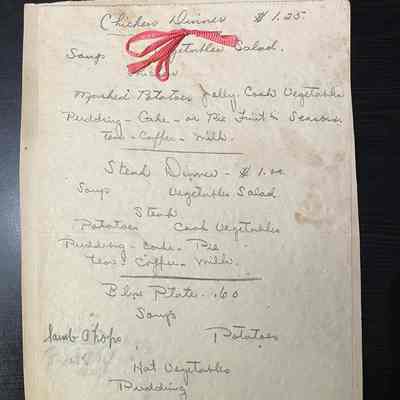 Chicken Dinner $1.25
Soup Vegetables Salad.
Chicken
Mashed Potatoes Jelly Cook Vegetables
Pudding - Cake - or Pie Fruit in Season
tea - Coffee - Milk.
Steak Dinner - $1.00
Soup Vegetable Salad
Steak
Potatoes Cook Vegetables
Pudding - Cake - Pie
tea - Coffee - Milk.
Blue Plate - .60
Soup
Lamb Chops Potatoes
Hot Vegetables
Pudding